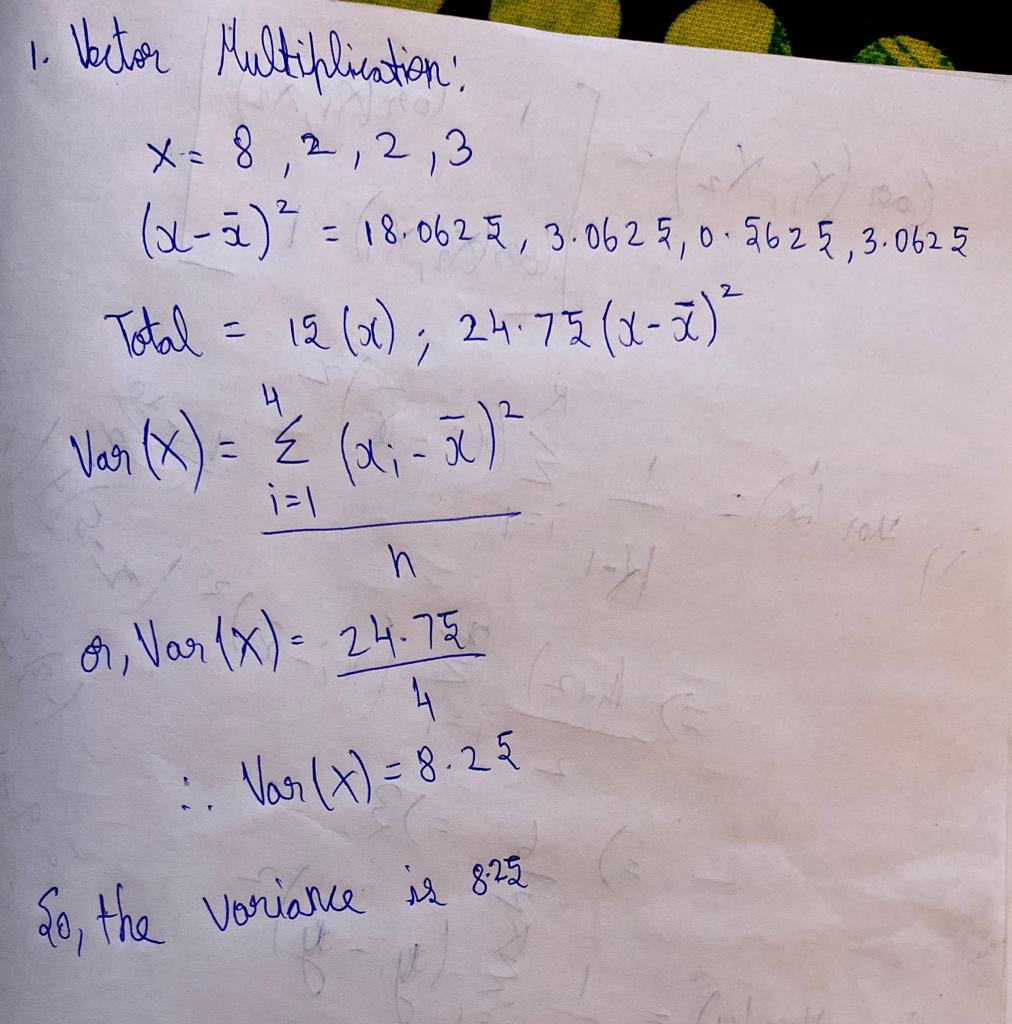 1. Vector Multiplication:
X = 8, 2, 2, 3
(x-x̄)² = 18.0625, 3.0625, 0.5625, 3.0625
Total = 15 (x); 24.75 (x-x̄)²
Var(X) = 4 Σ i=1 (xi - x̄)²
n
or, Var(X) = 24.75
4
∴ Var(X) = 8.25
So, the variance is 8.25